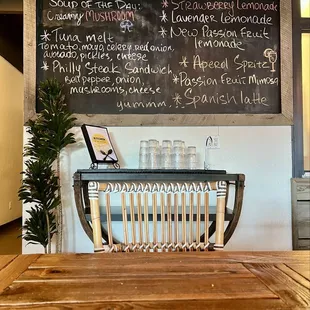 Soup of the Day:
Creamy MUSHROOM
* Tuna melt -
Tomato, mayo, celery, red onion,
avocado, pickles, cheese
* Philly Steak Sandwich
Red pepper, onion,
mushrooms, cheese
yummm..
* Strawberry Lemonade
* lavender Lemonade
* New Passion Fruit
lemonade
* Aperol Spritz
* Passion Fruit Mimosa
* Spanish latte